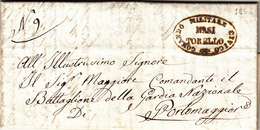 N 9.
COMANDO MILITARE CIVICO
MASI
TORELLO
All' Illustrissimo Signore
Il Sig.r Maggiore Comandante il
Battaglione della Gardia Nazionale
Di Portomaggiore